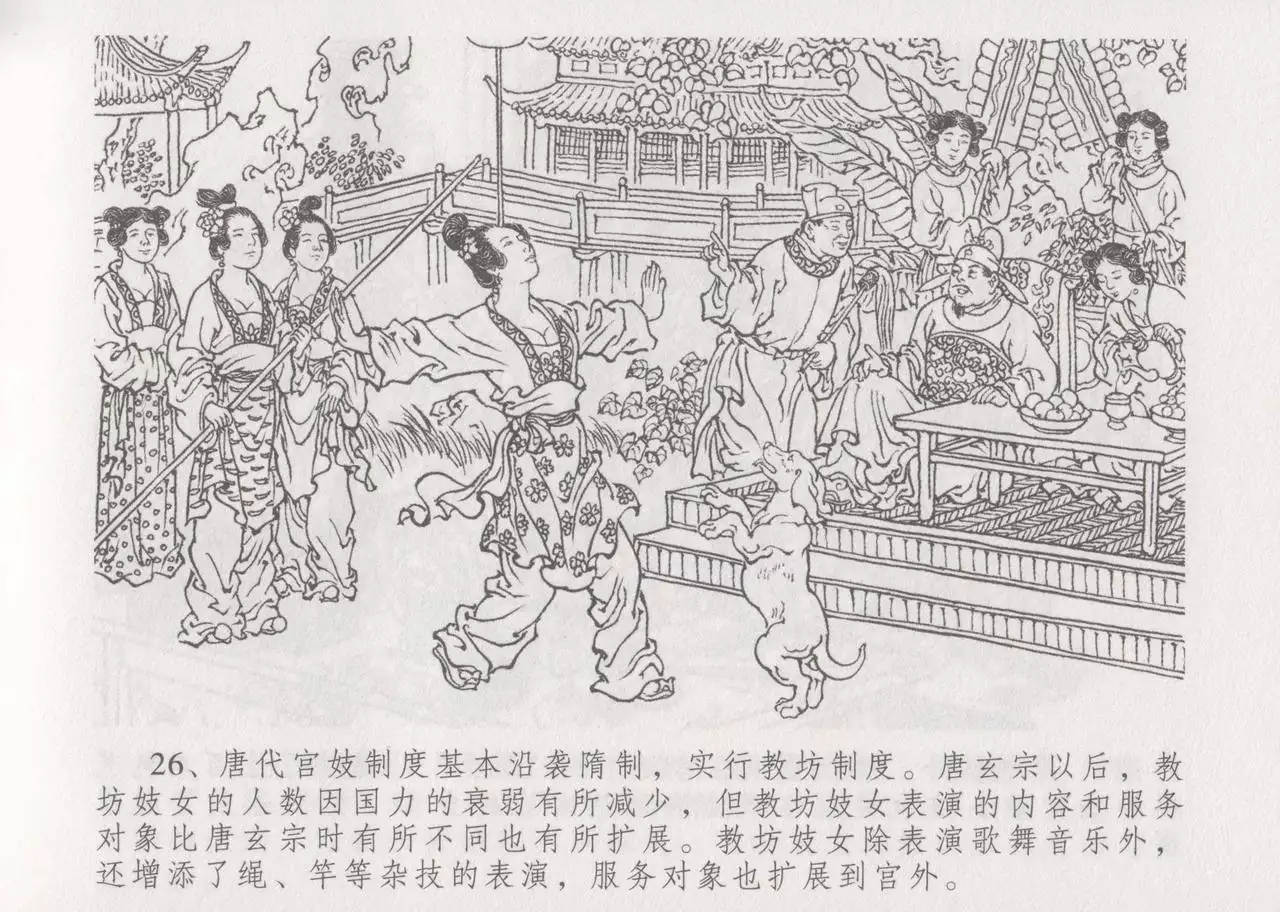 26、唐代宫妓制度基本沿袭隋制，实行教坊制度。唐玄宗以后，教
坊妓女的人数因国力的衰弱有所减少，但教坊妓女表演的内容和服务
对象比唐玄宗时有所不同也有所扩展。教坊妓女除表演歌舞音乐外，
还增添了绳、竿等杂技的表演，服务对象也扩展到宫外。